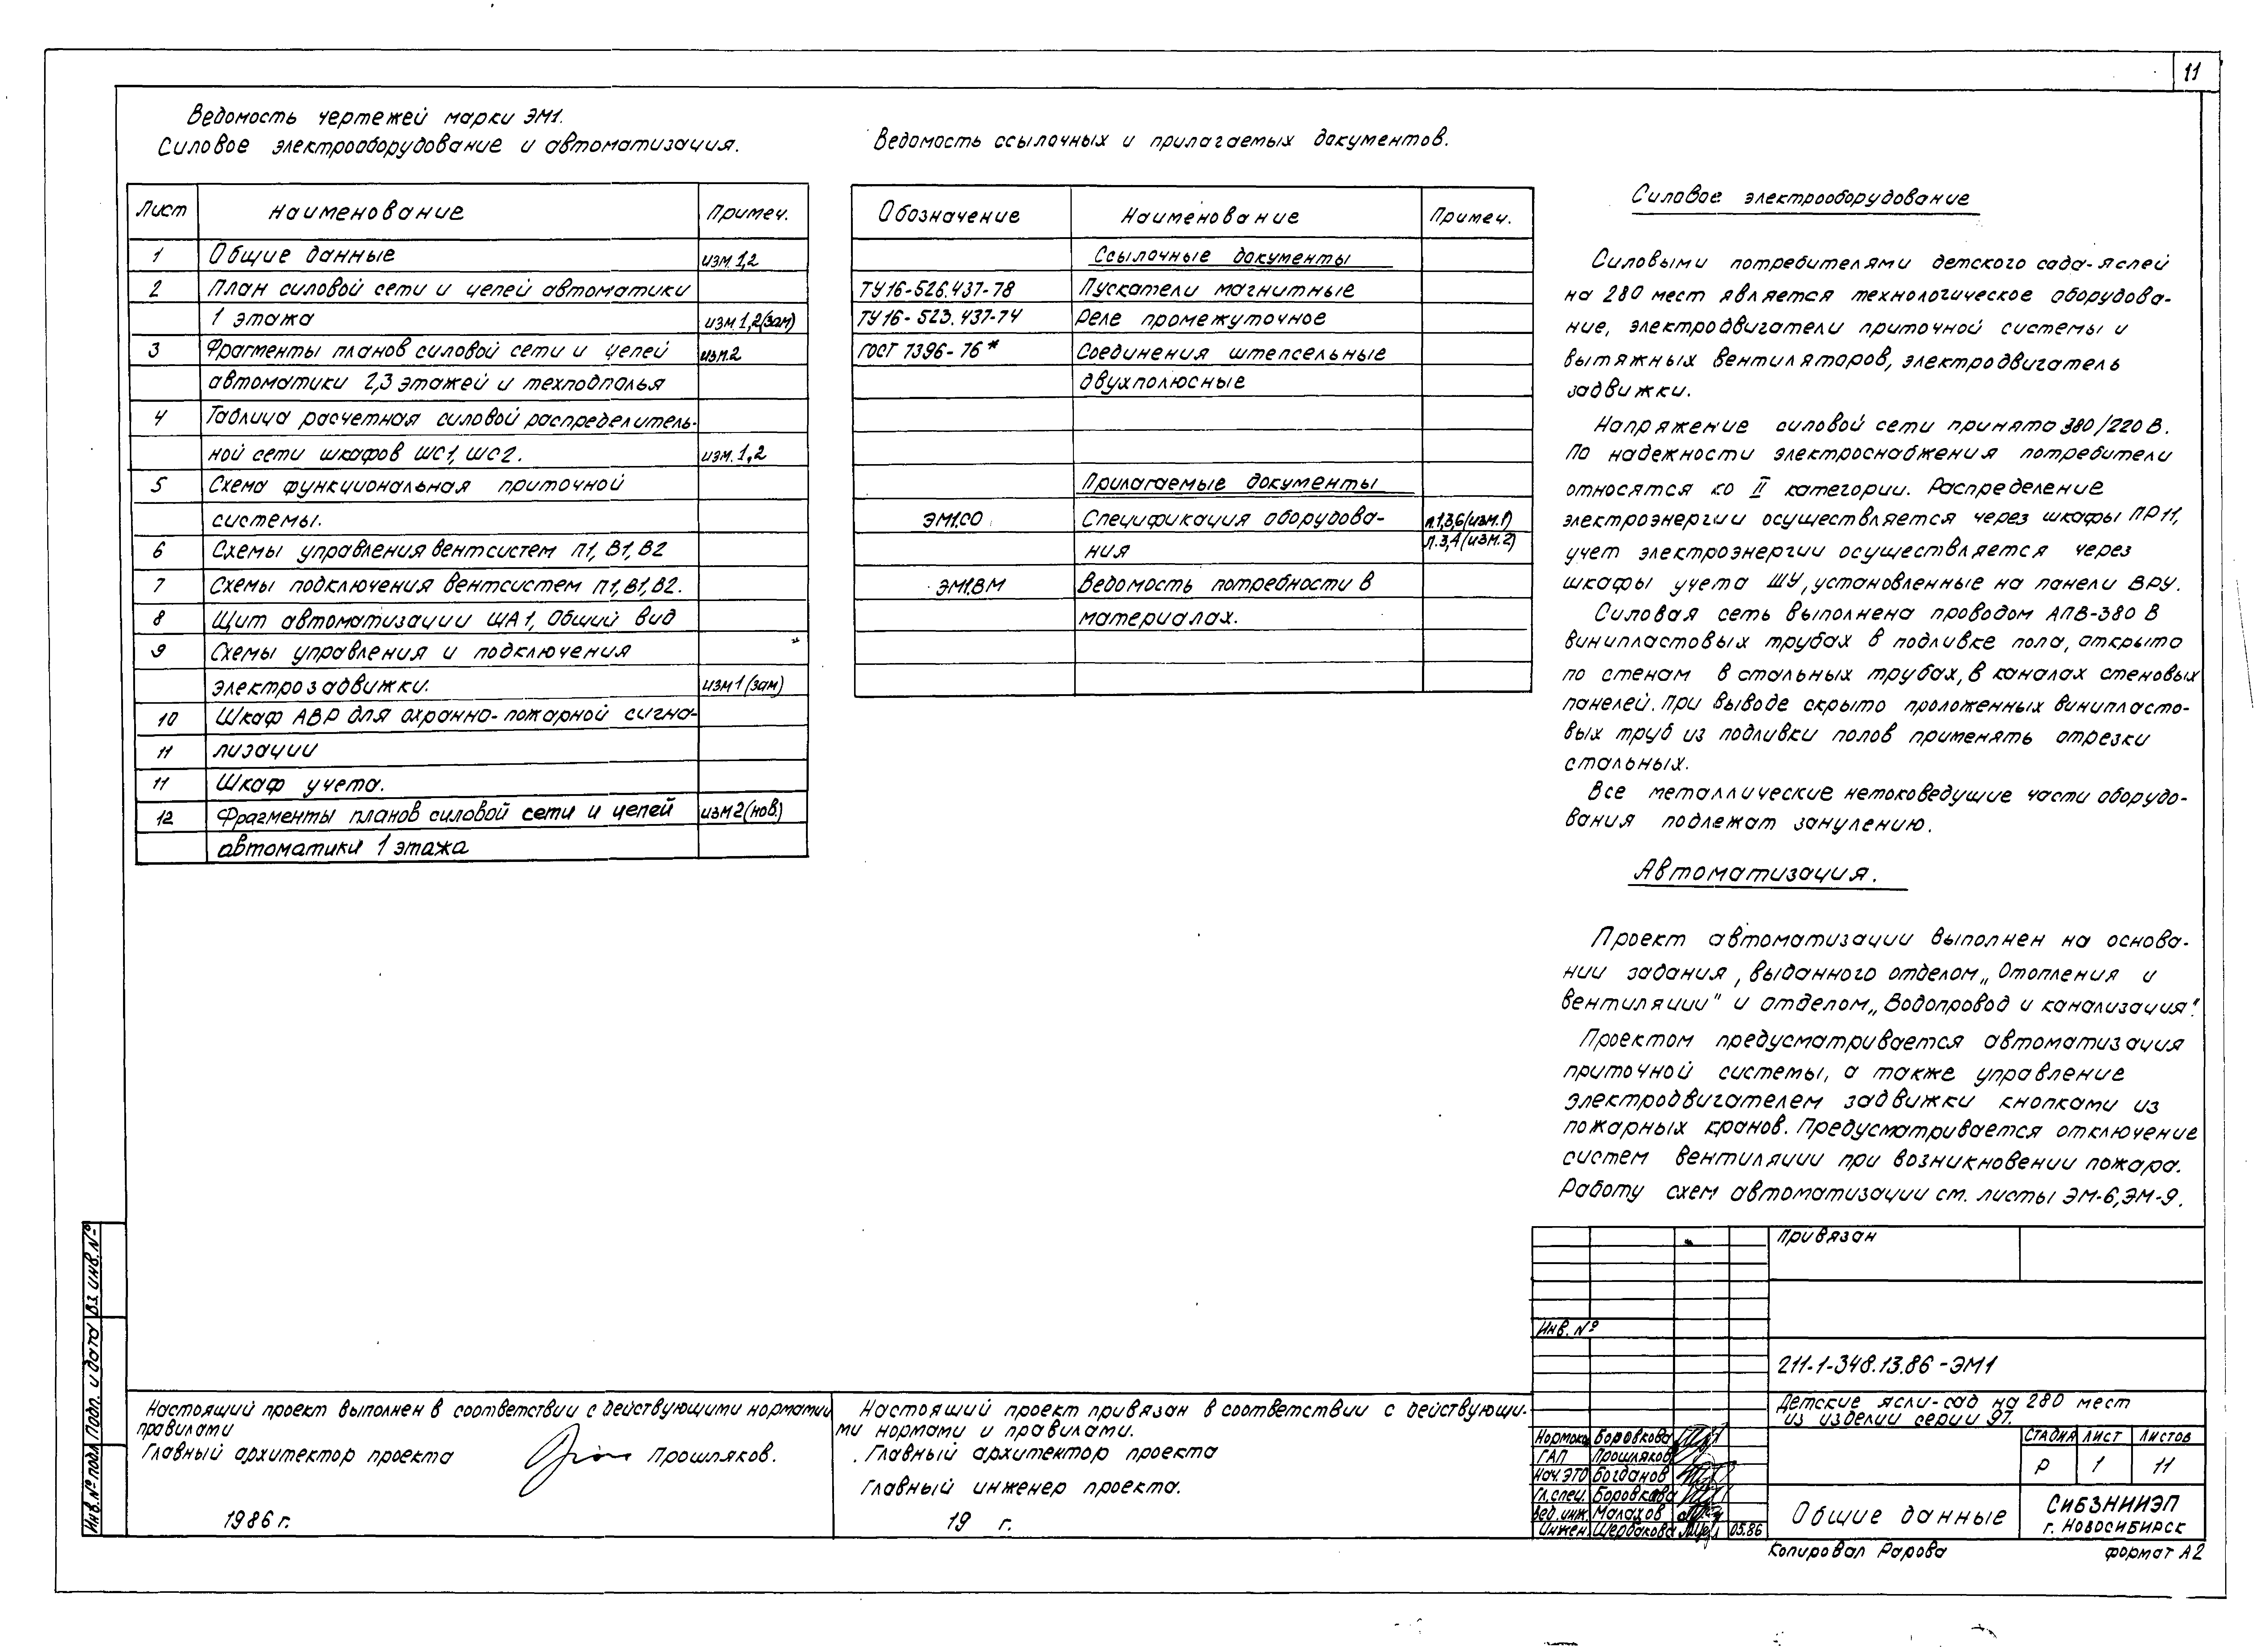 11
Ведомость чертежей марки ЭМ1.
Силовое электрооборудование и автоматизация.
Лист Наименование Примеч.
1 Общие данные изм. 1,2
2 План силовой сети и цепей автоматики
1 этажа изм 1,2(зам)
3 Фрагменты планов силовой сети и цепей изм.2
автоматики 2,3 этажей и техподполья
4 Таблица расчетная силовой распределитель-
ной сети шкафов ШС1, ШС2. изм. 1,2
5 Схема функциональная приточной
системы.
6 Схемы управления вентсистем П1, В1, В2
7 Схемы подключения вентсистем П1, В1, В2.
8 Щит автоматизации ЩА1, Общий вид
9 Схемы управления и подключения
электрозадвижки. изм 1 (зам)
10 Шкаф АВР для охранно-пожарной сигна-
11 лизации
11 Шкаф учета.
12 Фрагменты планов силовой сети и цепей изм 2(нов.)
автоматики 1 этажа
Ведомость ссылочных и прилагаемых документов.
Обозначение Наименование Примеч.
Ссылочные документы
ТУ16-526.437-78 Пускатели магнитные
ТУ16-523.437-74 Реле промежуточное
ГОСТ 7396-76* Соединения штепсельные
двухполюсные
Прилагаемые документы
ЭМ1.СО Спецификация оборудова- л.1,3,6(изм.1)
ния л.3,4(изм.2)
ЭМ1.ВМ Ведомость потребности в
материалах.
Силовое электрооборудование
Силовыми потребителями детского сада-яслей
на 280 мест является технологическое оборудова-
ние, электродвигатели приточной системы и
вытяжных вентиляторов, электродвигатель
задвижки.
Напряжение силовой сети принято 380/220 В.
По надежности электроснабжения потребители
относятся ко II категории. Распределение
электроэнергии осуществляется через шкафы ПР11,
учет электроэнергии осуществляется через
шкафы учета ШУ, установленные на панели ВРУ.
Силовая сеть выполнена проводом АПВ-380 В
винипластовых трубах в подливке пола, открыто
по стенам в стальных трубах, в каналах стеновых
панелей. При выводе скрыто проложенных винипласто-
вых труб из подливки полов применять отрезки
стальных.
Все металлические нетоковедущие части оборудо-
вания подлежат занулению.
Автоматизация.
Проект автоматизации выполнен на основа-
нии задания, выданного отделом „Отопления и
вентиляции" и отделом „Водопровод и канализация".
Проектом предусматривается автоматизация
приточной системы, а также управление
электродвигателем задвижки кнопками из
пожарных кранов. Предусматривается отключение
систем вентиляции при возникновении пожара.
Работу схем автоматизации см. листы ЭМ-6, ЭМ-9.
Привязан
Инв. №
211-1-348.13.86-ЭМ1
Детские ясли-сад на 280 мест
из изделий серии 97.
Нормок. Боровкова
ГАП Прошляков
Нач. ЭТО Богданов
Гл.спец. Боровкова
Вед. инж. Малахов
Инжен. Щербакова 05.86
СТАДИЯ ЛИСТ ЛИСТОВ
Р 1 11
Общие данные
СИБЗНИИЭП
г. НОВОСИБИРСК
Копировал Рарова
формат А2
Настоящий проект выполнен в соответствии с действующими нормами
правилами
Главный архитектор проекта Прошляков.
1986 г.
Настоящий проект привязан в соответствии с действующи-
ми нормами и правилами.
Главный архитектор проекта
Главный инженер проекта.
19 г.
Инв. № подл. Подп. и дата Вз. инв. №